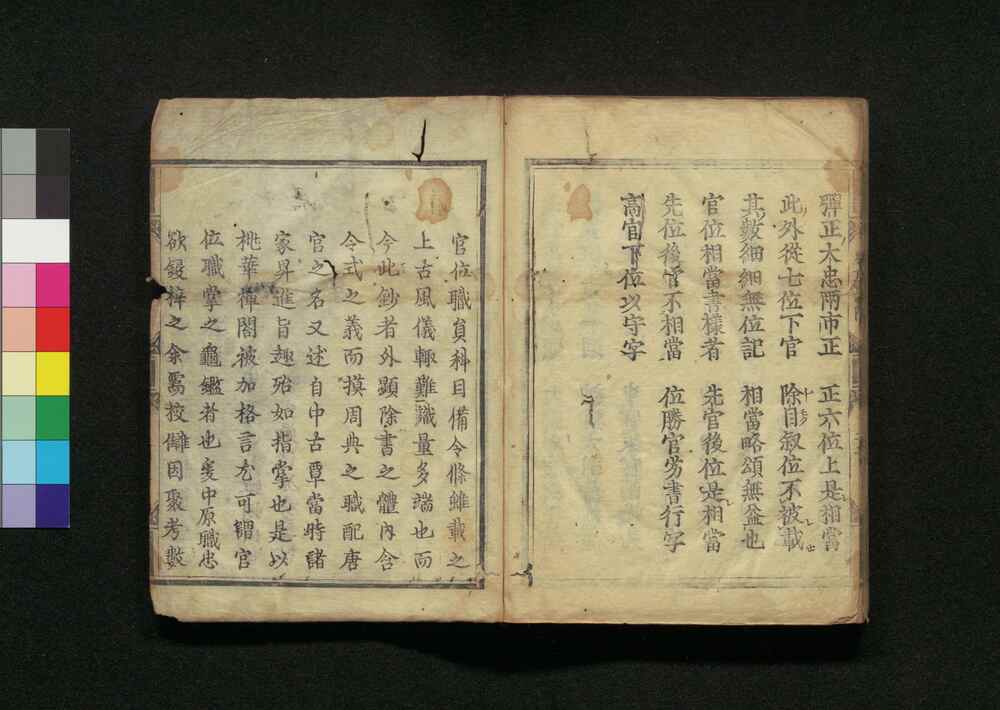 弾正大忠両市正　正六位上是相當
此外從七位下官　除目叙位不被載
其數細細無位記　相當略頌無益也
官位相當書樣者　先官後位是相當
先位後官不相當　位勝官劣書行字
高官下位以守字
官位職員科目備令條雖載之
上古風儀輙難識量多端也而
今此鈔者外顕除書之體内含
令式之義而摸周典之職配唐
官之名又述自中古覃當時諸
家昇進旨趣殆如指掌也是以
桃華禪閤被加格言尤可謂官
位職掌之龜鑑者也爰中原職忠
欲鋟梓之余需挍讎因聚考數